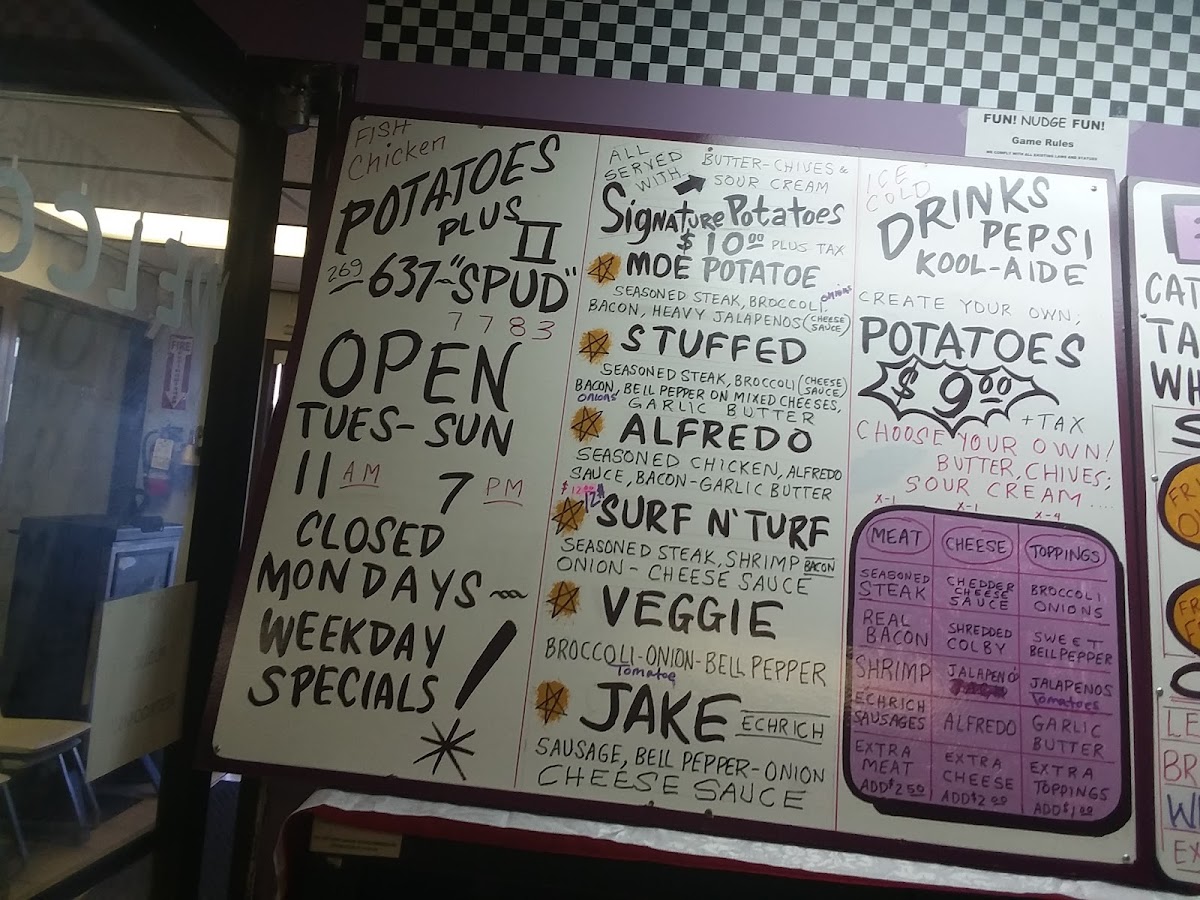 FISH
Chicken
POTATOES
PLUS
II
269 637-"SPUD"
7783
OPEN
TUES-SUN
11 AM 7 PM
CLOSED
MONDAYS~
WEEKDAY
SPECIALS!
ALL
SERVED
WITH
BUTTER-CHIVES &
SOUR CREAM
Signature Potatoes
$10.00 PLUS TAX
MOE POTATOE
SEASONED STEAK, BROCCOLI, onions
BACON, HEAVY JALAPENOS (CHEESE SAUCE)
STUFFED
SEASONED STEAK, BROCCOLI (CHEESE SAUCE)
BACON, BELL PEPPER ON MIXED CHEESES,
ONIONS
GARLIC BUTTER
ALFREDO
SEASONED CHICKEN, ALFREDO
SAUCE, BACON-GARLIC BUTTER
$12.00
SURF N' TURF
SEASONED STEAK, SHRIMP BACON
ONION-CHEESE SAUCE
VEGGIE
BROCCOLI-ONION-BELL PEPPER
Tomatoe
JAKE ECHRICH
SAUSAGE, BELL PEPPER-ONION
CHEESE SAUCE
FUN! NUDGE FUN!
Game Rules
WE COMPLY WITH ALL EXISTING LAWS AND STATUTES
ICE
COLD
DRINKS
PEPSI
KOOL-AIDE
CREATE YOUR OWN;
POTATOES
$9.00
+TAX
CHOOSE YOUR OWN!
BUTTER, CHIVES;
SOUR CREAM....
X-1 X-1 X-4
MEAT CHEESE TOPPINGS
SEASONED STEAK
CHEDDER CHEESE SAUCE
BROCCOLI ONIONS
REAL BACON
SHREDDED COLBY
SWEET BELLPEPPER
SHRIMP
JALAPENO
JALAPENOS
Tomatoes
ECHRICH SAUSAGES
ALFREDO
GARLIC BUTTER
EXTRA MEAT ADD $2.50
EXTRA CHEESE ADD $2.00
EXTRA TOPPINGS ADD $1.00
CAT
TA
WH
S
FR
FR
LE
BR
WH
EX
WELCO
FIRE